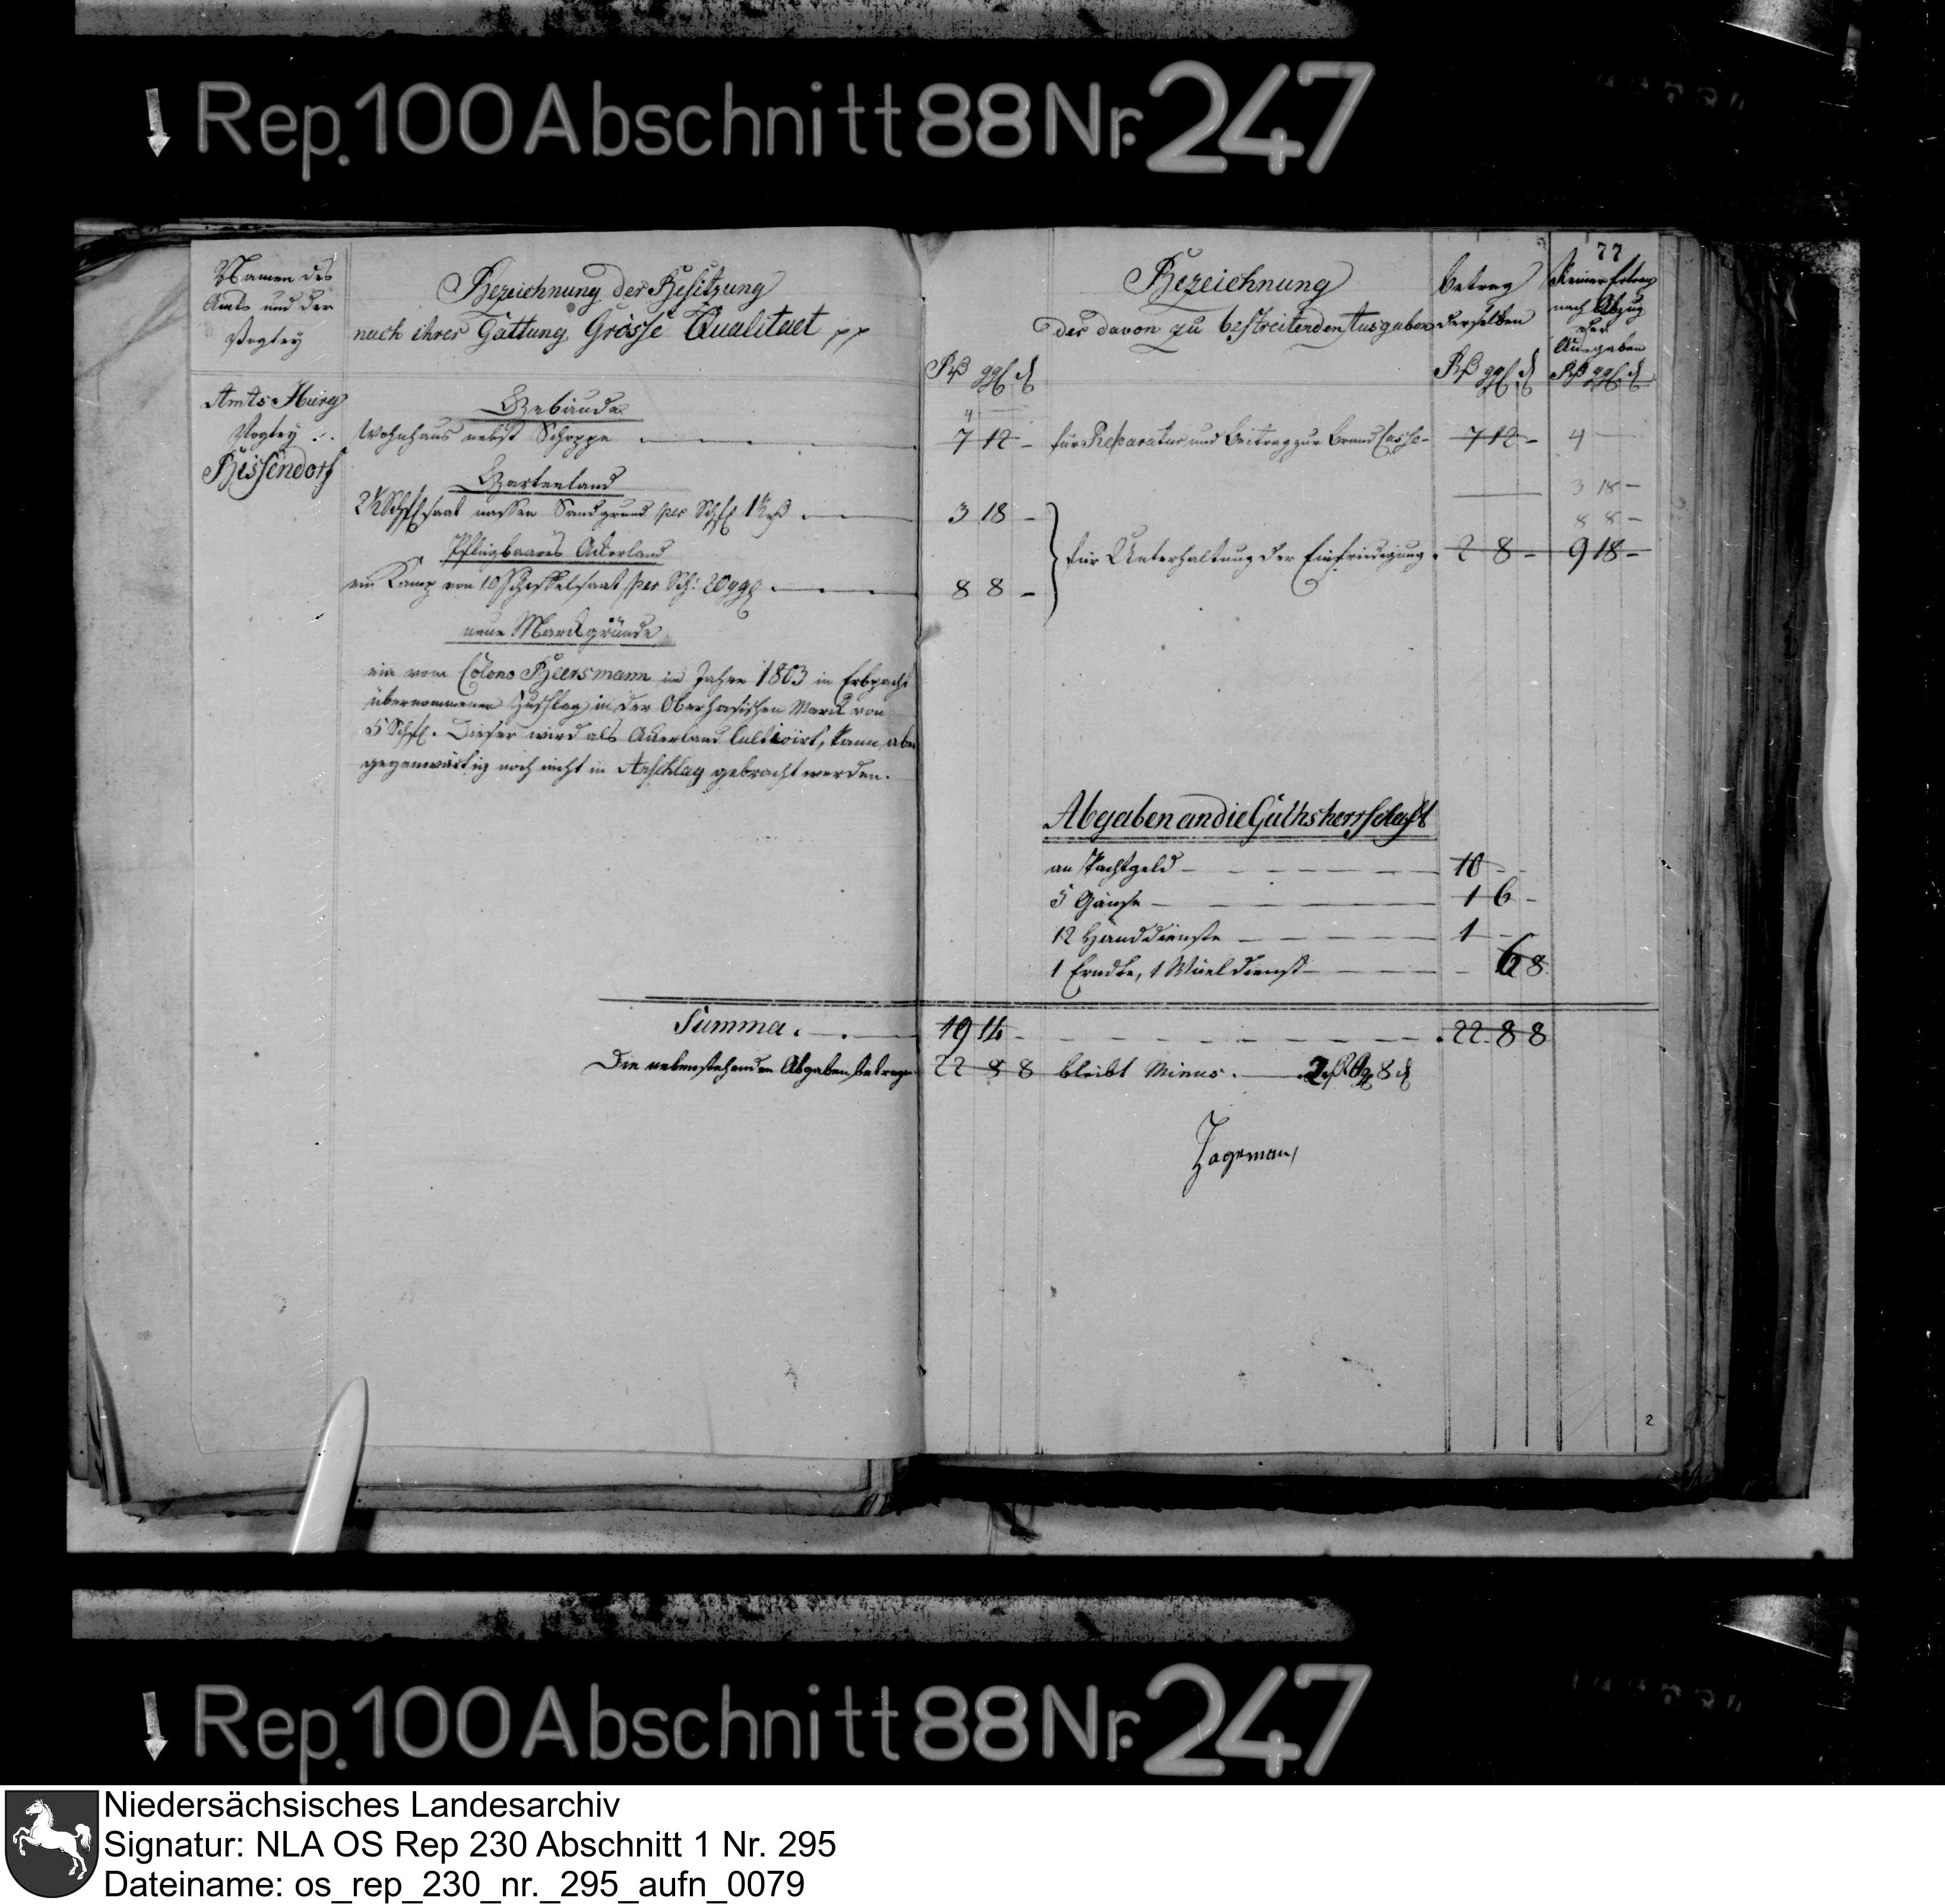 Rep. 100 Abschnitt 88 Nr. 247
77
Namen des
Amts und der
Vogtey
Bezeichnung der Besitzung
nach ihrer Gattung Grösse Qualitaet pp
Bezeichnung
der davon zu bestreitenden Ausgaben
Betrag
derselben
Reiner Ertrag
nach Abzug
der
Ausgaben
Rß ggl d
Rß ggl d
Rß ggl d
Amts Iburg
Vogtey
Bissendorf
Gebäude
4
Wohnhaus nebst Schoppe
7 12 -
für Reparatur und Beitrag zur Brand Casse
7 12 -
4 -
Gartenland
2½ Schflsaat nassen Sandgrund per Schfl 1½ rß
3 18 -
3 18 -
8 8 -
Pflugbaares Ackerland
für Unterhaltung der Einfriedigung
2 8 -
9 18 -
ein Kamp von 10 Scheffelsaat per Sch: 20 ggl
8 8 -
neue Markgründe
ein vom Colono Beersmann im Jahre 1803 in Erbpacht
übernommener Zuschlag in der Oberhasischen Marck von
5 Schfl. Dieser wird als Ackerland cultivirt, kann aber
gegenwärtig noch nicht in Anschlag gebracht werden.
Abgaben an die Guthsherrschaft
an Pachtgeld
10 -
5 Gänse
1 6 -
12 Handdienste
1 - -
1 Erndte, 1 dienst
- 6 8
Summa
19 14 -
22 8 8
Die nebenstehenden Abgaben betragen
22 8 8
bleibt Minus
8 d
Hagemann
2
Rep. 100 Abschnitt 88 Nr. 247
Niedersächsisches Landesarchiv
Signatur: NLA OS Rep 230 Abschnitt 1 Nr. 295
Dateiname: os_rep_230_nr._295_aufn_0079